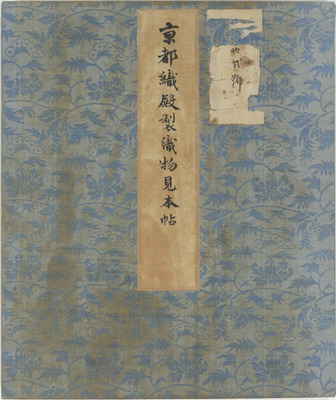 京都織殿製織物見本帖